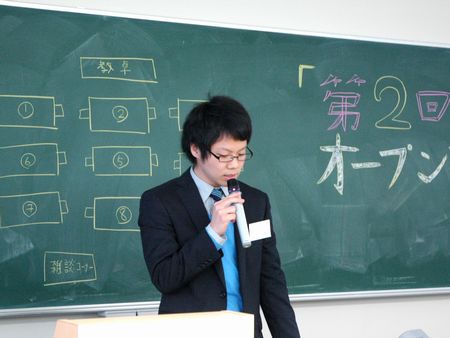 教卓
「第2回
① ②
オープン
⑥ ⑤
⑦ ⑧
雑談コーナー